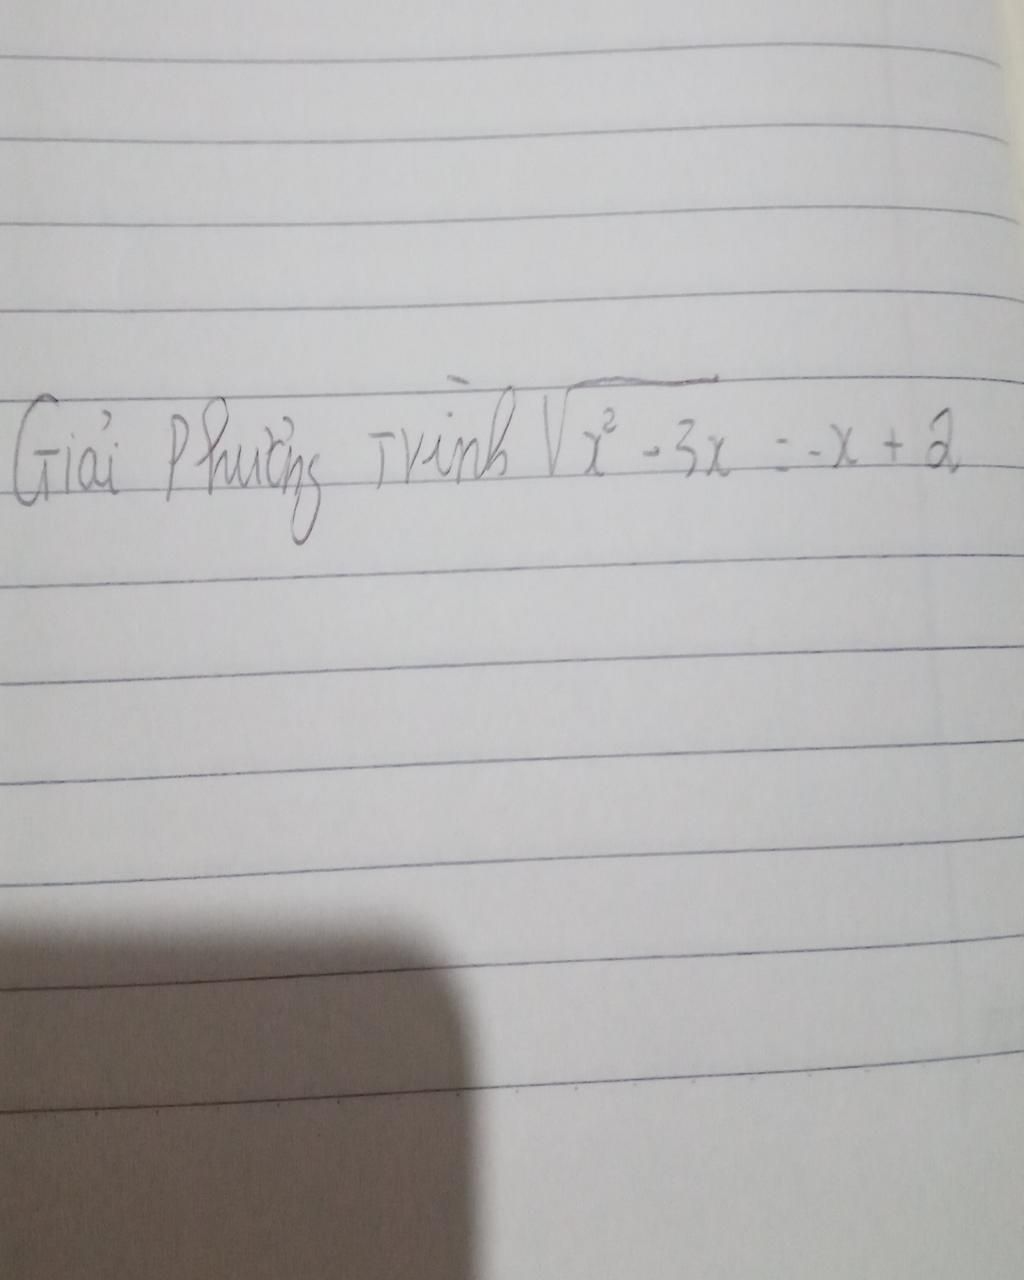 Giải Phương Trình √x² - 3x = -x + 2